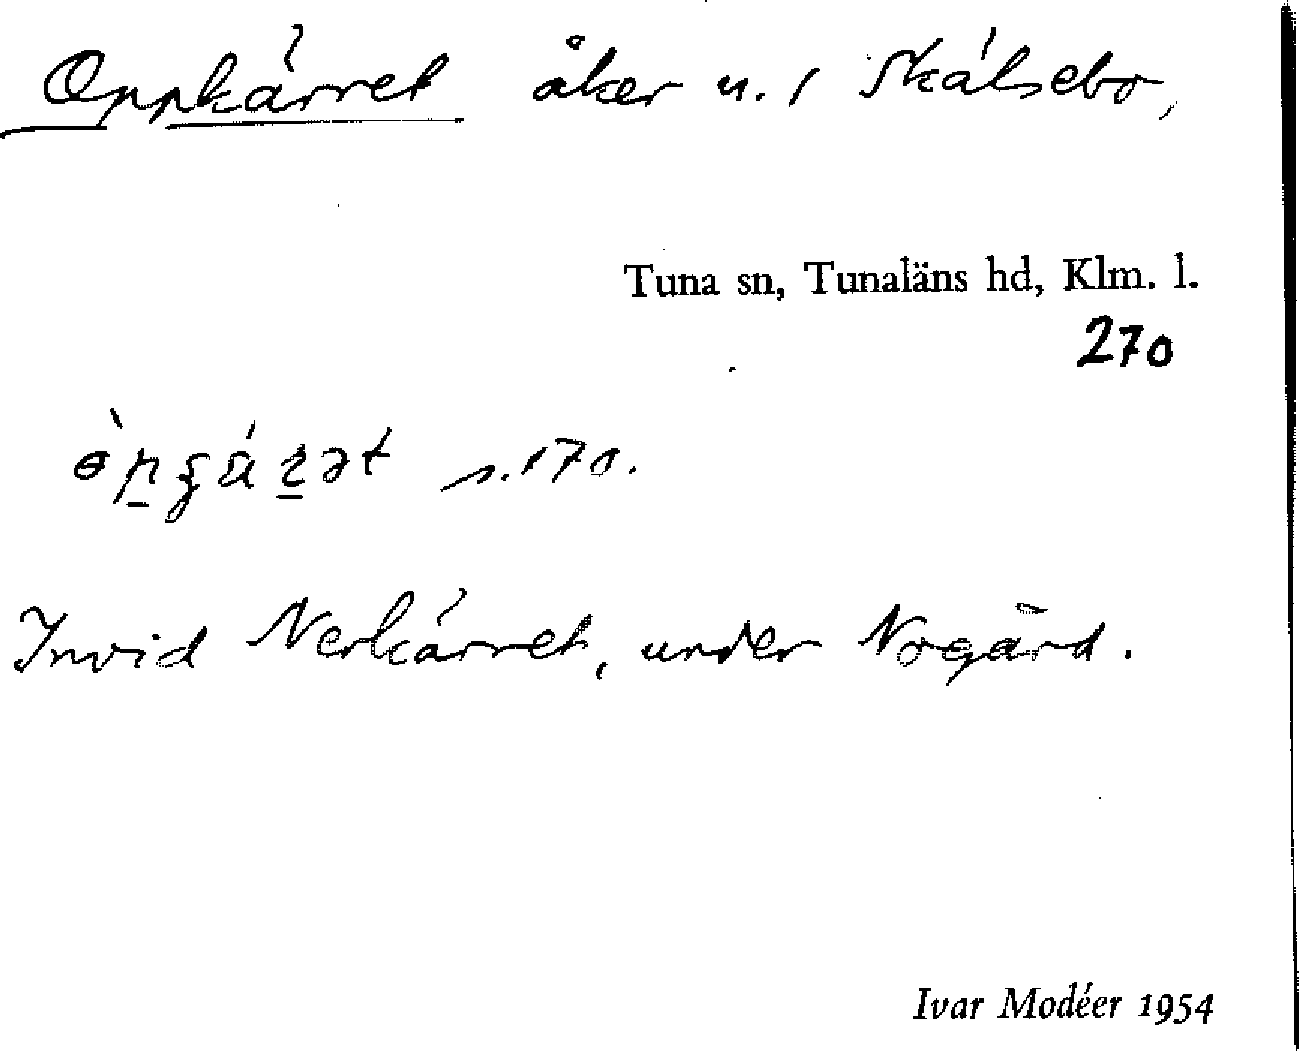 Oppkärret åker u. / Skälsebo,
Tuna sn, Tunaläns hd, Klm. l.
270
s. 170.
Invid Nerkärret, under Nogärd.
Ivar Modéer 1954